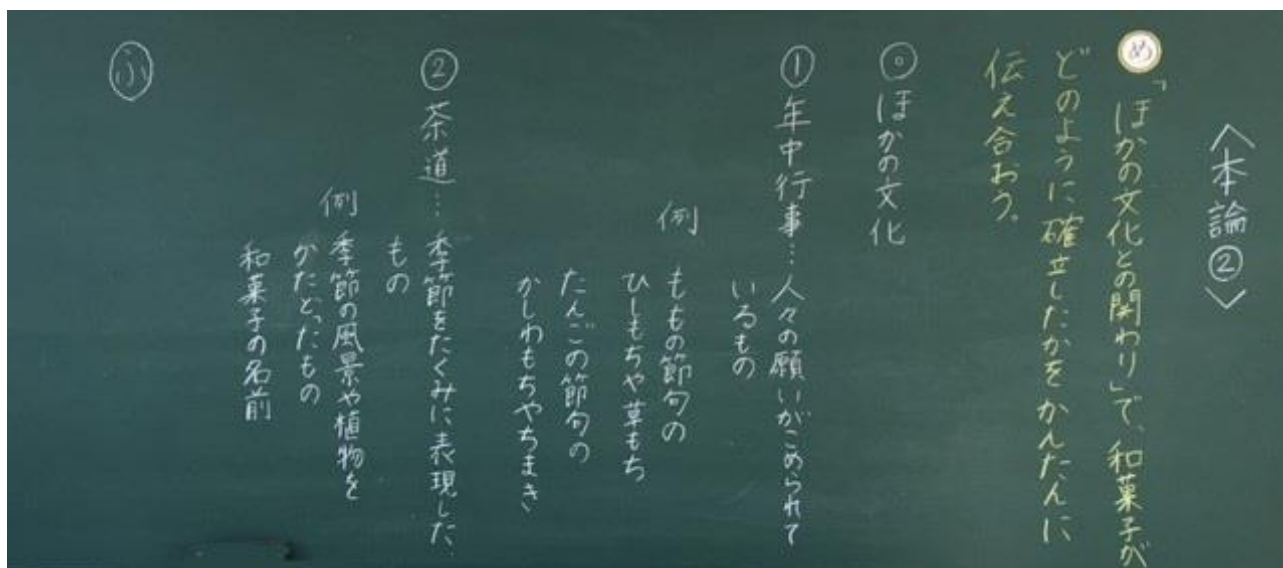 〈本論②〉
め「ほかの文化との関わり」で、和菓子が
どのように確立したかをかんたんに
伝え合おう。
◎ほかの文化
①年中行事…人々の願いがこめられて
いるもの
例 ももの節句の
ひしもちや草もち
たんごの節句の
かしわもちやちまき
②茶道…季節をたくみに表現した
もの
例 季節の風景や植物を
かたどったもの
和菓子の名前
ふ